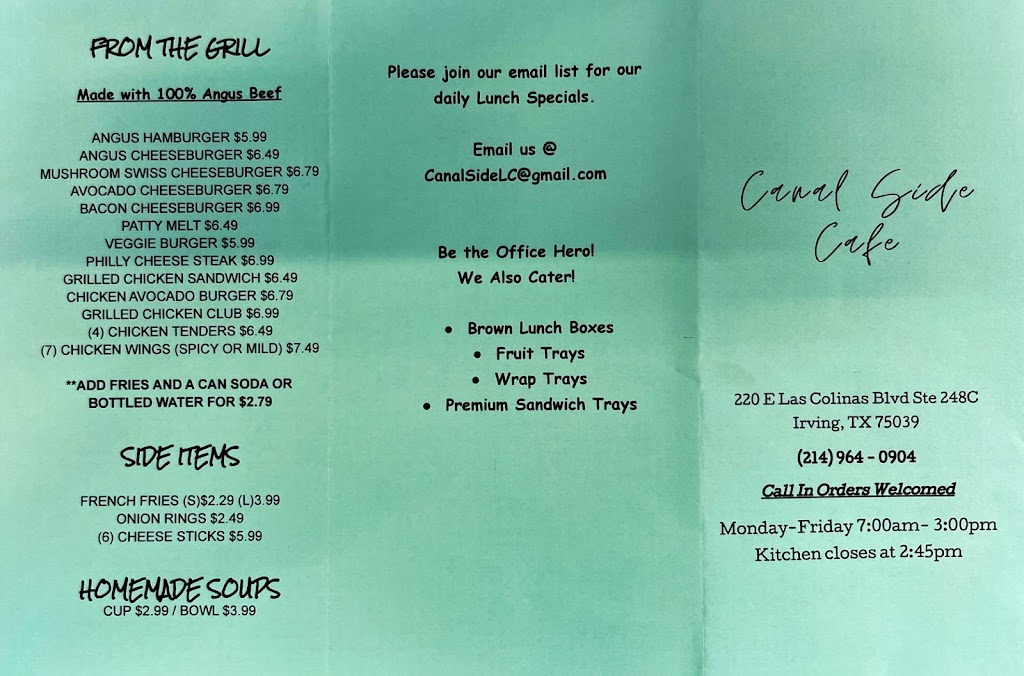 FROM THE GRILL
Made with 100% Angus Beef
ANGUS HAMBURGER $5.99
ANGUS CHEESEBURGER $6.49
MUSHROOM SWISS CHEESEBURGER $6.79
AVOCADO CHEESEBURGER $6.79
BACON CHEESEBURGER $6.99
PATTY MELT $6.49
VEGGIE BURGER $5.99
PHILLY CHEESE STEAK $6.99
GRILLED CHICKEN SANDWICH $6.49
CHICKEN AVOCADO BURGER $6.79
GRILLED CHICKEN CLUB $6.99
(4) CHICKEN TENDERS $6.49
(7) CHICKEN WINGS (SPICY OR MILD) $7.49
**ADD FRIES AND A CAN SODA OR
BOTTLED WATER FOR $2.79
SIDE ITEMS
FRENCH FRIES (S)$2.29 (L)3.99
ONION RINGS $2.49
(6) CHEESE STICKS $5.99
HOMEMADE SOUPS
CUP $2.99 / BOWL $3.99
Please join our email list for our
daily Lunch Specials.
Email us @
CanalSideLC@gmail.com
Be the Office Hero!
We Also Cater!
● Brown Lunch Boxes
● Fruit Trays
● Wrap Trays
● Premium Sandwich Trays
Canal Side
Cafe
220 E Las Colinas Blvd Ste 248C
Irving, TX 75039
(214) 964 - 0904
Call In Orders Welcomed
Monday-Friday 7:00am- 3:00pm
Kitchen closes at 2:45pm